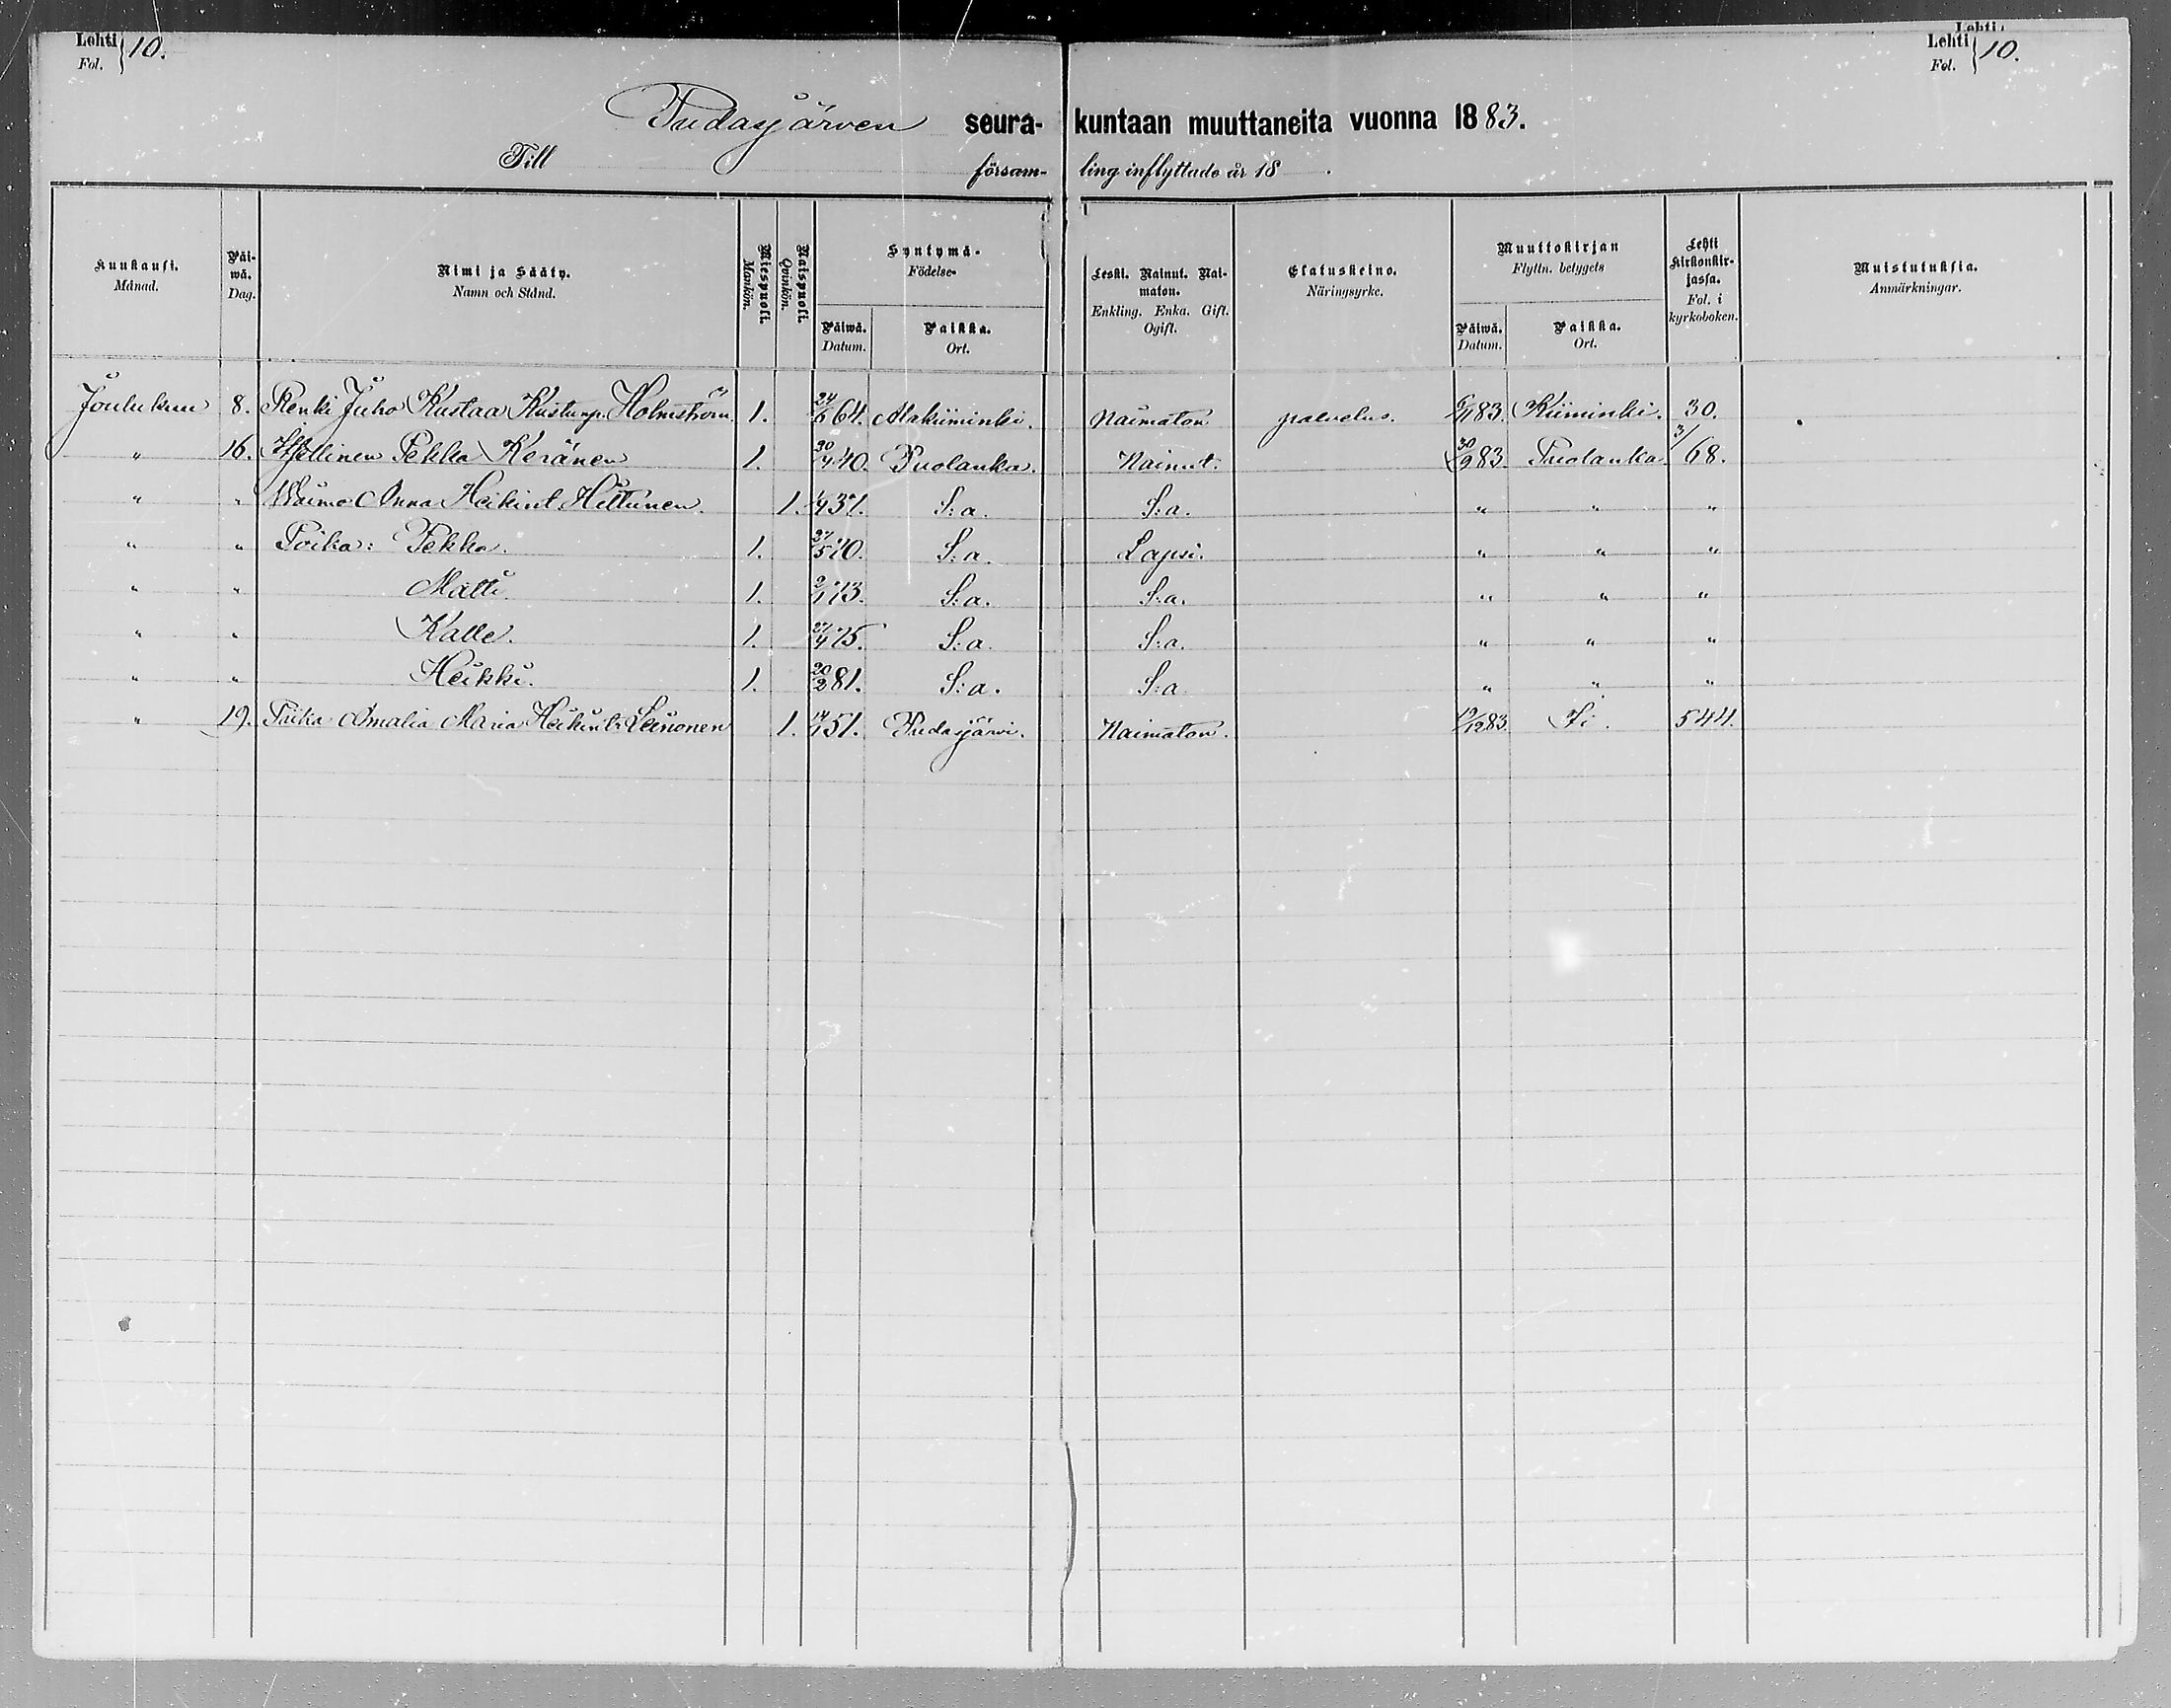 Lehti Fol. } 10.
Lehti
Lehti Fol. } 10.
Pudasjärven seura- kuntaan muuttaneita vuonna 1883.
Till församling inflyttade år 18 .
Kuukausi. Månad. | Päiwä. Dag. | Nimi ja Sääty. Namn och Stånd. | Miespuoli. Mankön. | Naispuoli. Qvinkön. | Syntymä- Födelse- Päiwä. Datum. | Paikka. Ort. | Leski. Nainut. Naimaton. Enkling. Enka. Gift. Ogift. | Elatuskeino. Näringsyrke. | Muuttokirjan Flyttn. betygets Päiwä. Datum. | Paikka. Ort. | Lehti kirkonkirjassa. Fol. i kyrkoboken. | Muistutuksia. Anmärkningar.
Joulukuu 8. Renki Juho Kustaa Kustunp. Holmström 1. 24/6 64. Alakiiminki. Naimaton palvelus. 6/11 83. Kiiminki. 30.
" 16. Itsellinen Pekka Keränen 1. 30/4 40. Puolanka. Nainut. 30/9 83. Puolanka 3/68.
" " Waimo Anna Heikint. Hiltunen. 1. 1/9 37. S:a. S:a. " " "
" " Poika: Pekka. 1. 27/5 70. S:a. Lapsi. " " "
" " Matti. 1. 2/1 73. S:a. S:a. " " "
" " Kalle. 1. 27/4 75. S:a. S:a. " " "
" " Heikki. 1. 20/2 81. S:a. S:a " " "
" 19. Piika Amalia Maria Heikint. Leinonen 1. 14/1 51. Pudasjärvi. Naimaton. 19/12 83. Ii. 544.